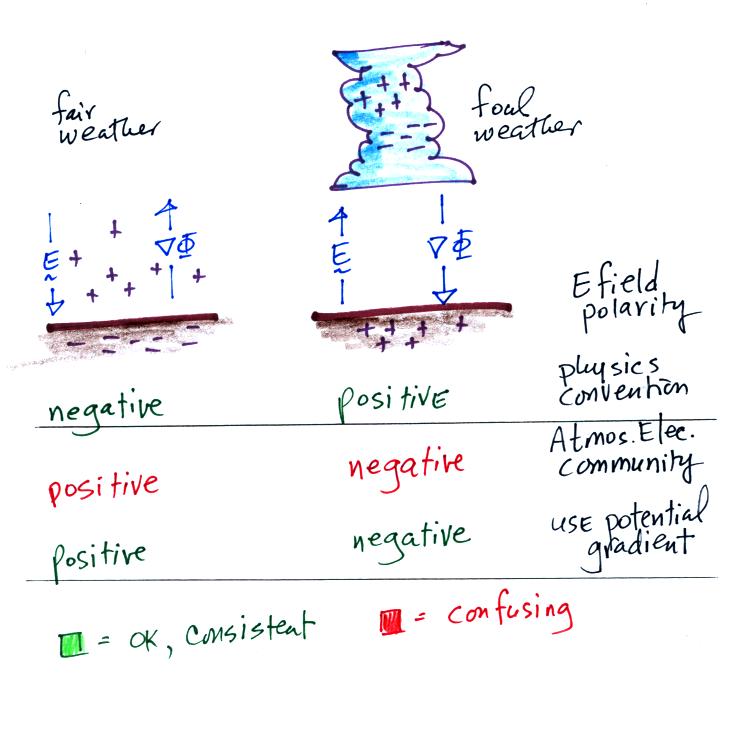 fair
weather
foul
weather
+ + + + +
- - - - - - -
E
~
+ + + + + + +
∇Φ
E
~
∇Φ
- - - - - - -
+ + + + + + +
E field
polarity
negative
positive
physics
convention
positive
negative
Atmos. Elec.
community
positive
negative
use potential
gradient
= OK, consistent
= confusing